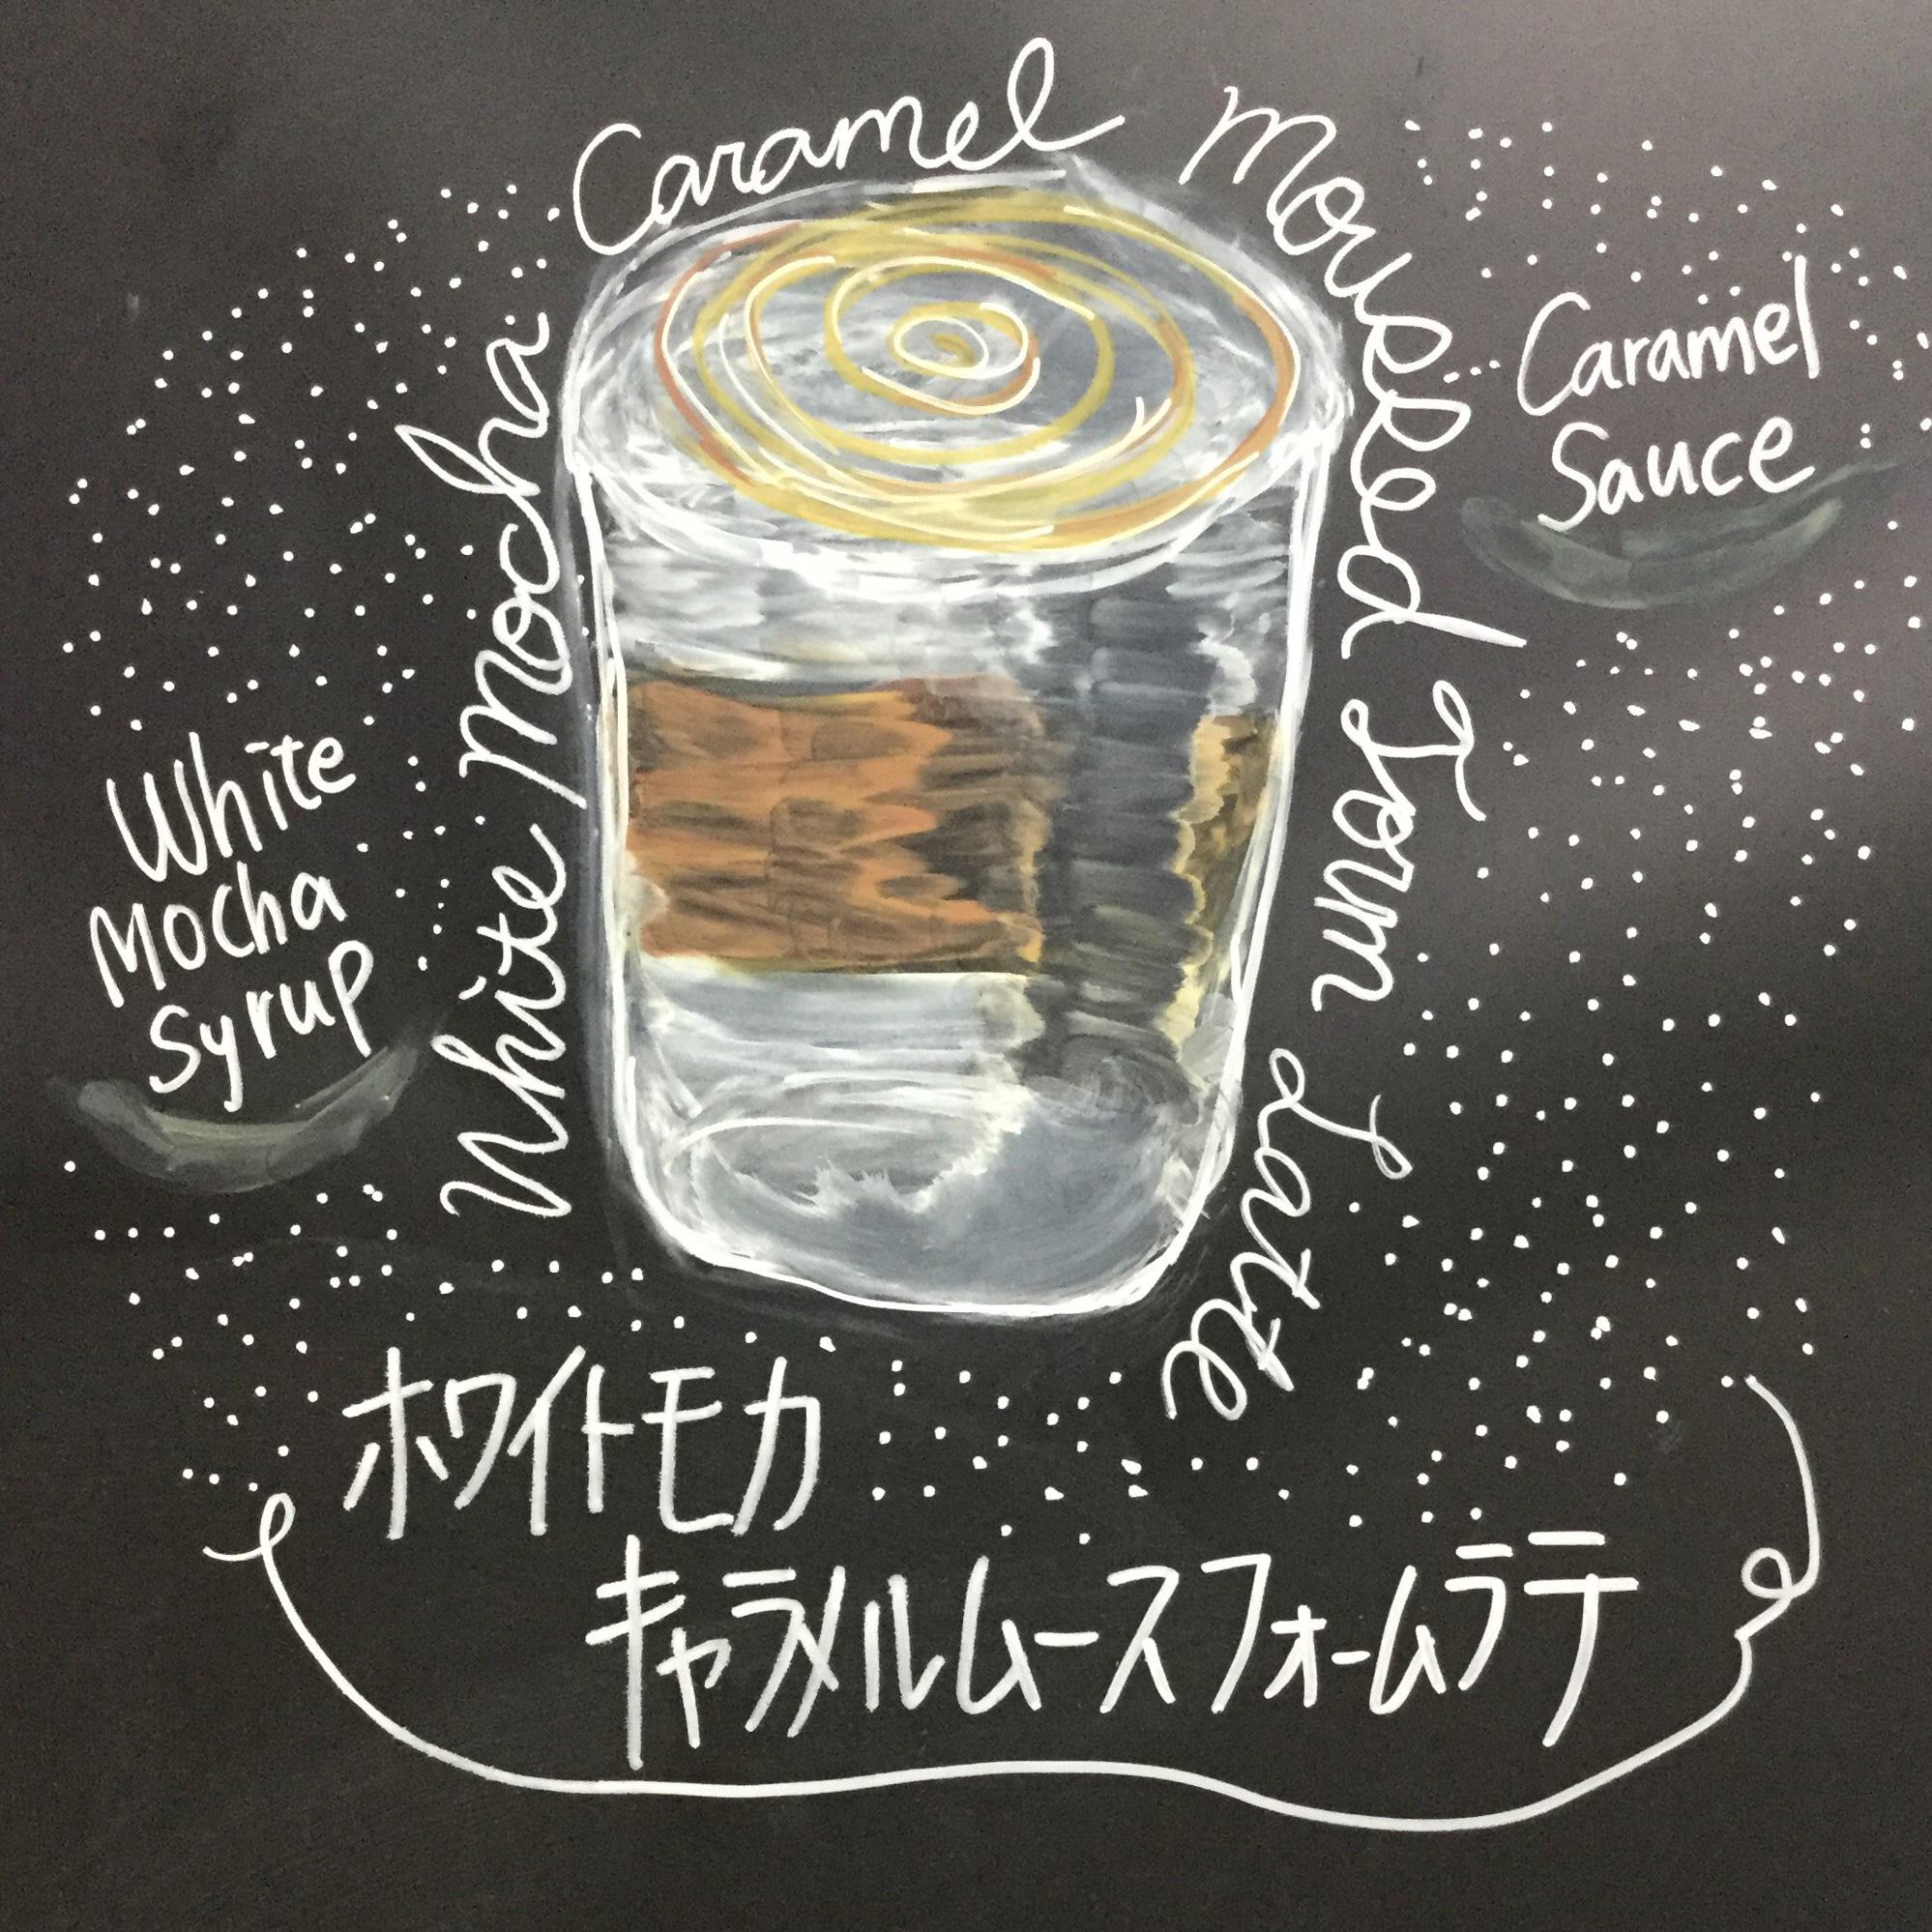 White Mocha Caramel Moussed Foam Latte
Caramel
Sauce
White
Mocha
Syrup
ホワイトモカ
キャラメルムースフォームラテ